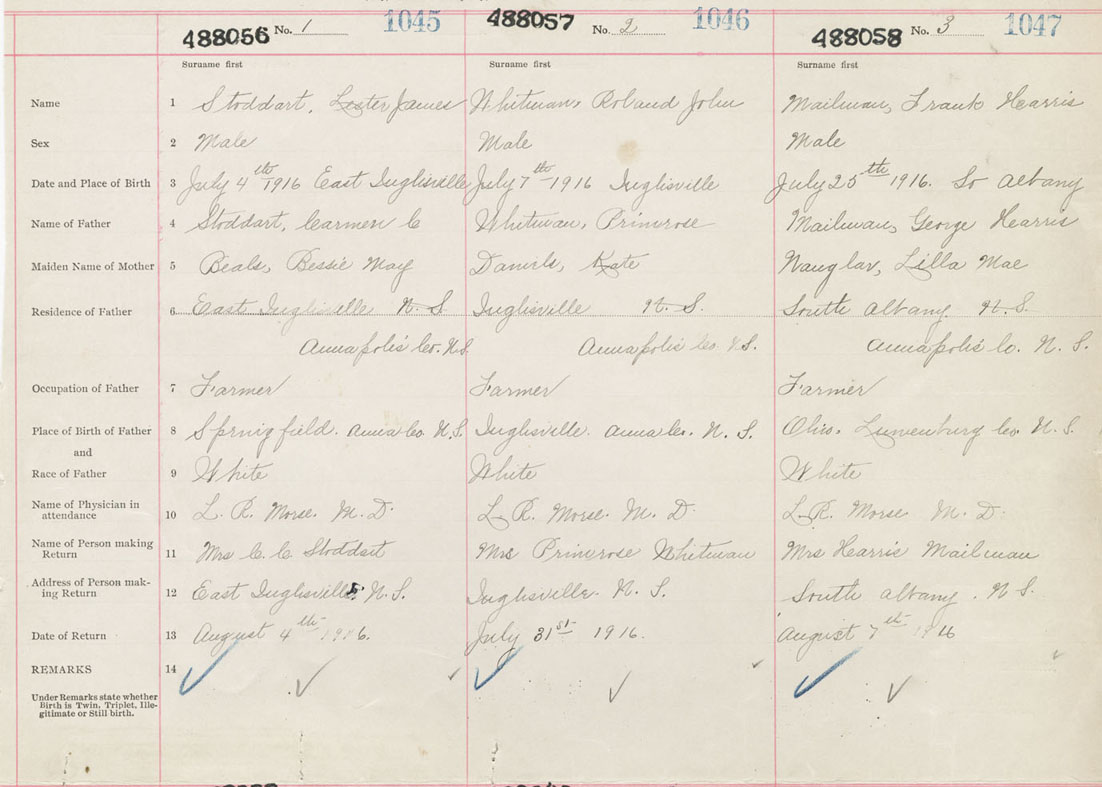 488056 No. 1 1045 488057 No. 2 1046 488058 No. 3 1047
Surname first Surname first Surname first
Name 1 Stoddart, Lester James Whitman, Roland John Mailman, Frank Harris
Sex 2 Male Male Male
Date and Place of Birth 3 July 4th 1916 East Inglisville July 7th 1916 Inglisville July 25th 1916. So Albany
Name of Father 4 Stoddart, Carmen C Whitman, Primrose Mailman, George Harris
Maiden Name of Mother 5 Beals, Bessie May Daniels, Kate Nauglar, Lilla Mae
Residence of Father 6 East Inglisville N. S. Inglisville N. S. South Albany N. S.
Annapolis Co. N.S. Annapolis Co N.S. Annapolis Co. N. S.
Occupation of Father 7 Farmer Farmer Farmer
Place of Birth of Father 8 Springfield. Anna Co. N.S. Inglisville. Anna Co. N. S. Ohio. Lunenburg Co. N.S.
and
Race of Father 9 White White White
Name of Physician in
attendance 10 L. R. Morse. M. D. L. R. Morse. M. D. L. R. Morse M. D.
Name of Person making
Return 11 Mrs C. C Stoddart Mrs Primrose Whitman Mrs Harris Mailman
Address of Person mak-
ing Return 12 East Inglisville N. S. Inglisville. N. S. South Albany. N S
Date of Return 13 August 4th 1916. July 31st 1916. August 7th 1916
REMARKS 14
Under Remarks state whether
Birth is Twin, Triplet, Ille-
gitimate or Still birth.